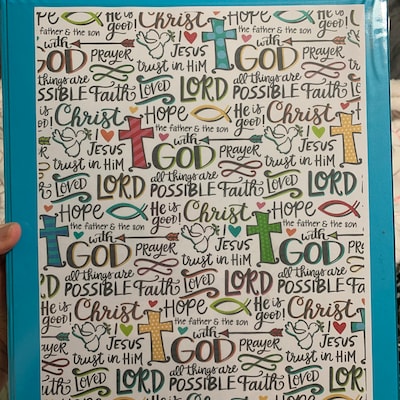 He is good! Christ Hope
the father & the son
with I ♥ JESUS
GOD PRAYER trust in HiM with GOD PRAYER
all things are POSSIBLE Faith Loved LORD all things are POSSIBLE Faith
Christ Hope He is good! Christ
I ♥ JESUS the father & the son I ♥ JESUS
trust in HiM with GOD PRAYER trust in HiM
Loved LORD all things are POSSIBLE Faith Loved LORD
Hope He is good! Christ Hope
the father & the son I ♥ JESUS the father & the son
with GOD PRAYER trust in HiM with GOD PRAYER
all things are POSSIBLE Faith Loved LORD all things are POSSIBLE
He is good! Christ Hope He is good! Christ
I ♥ JESUS the father & the son I ♥ JESUS
PRAYER trust in HiM with GOD PRAYER trust in HiM
Loved LORD all things are POSSIBLE Faith Loved LORD